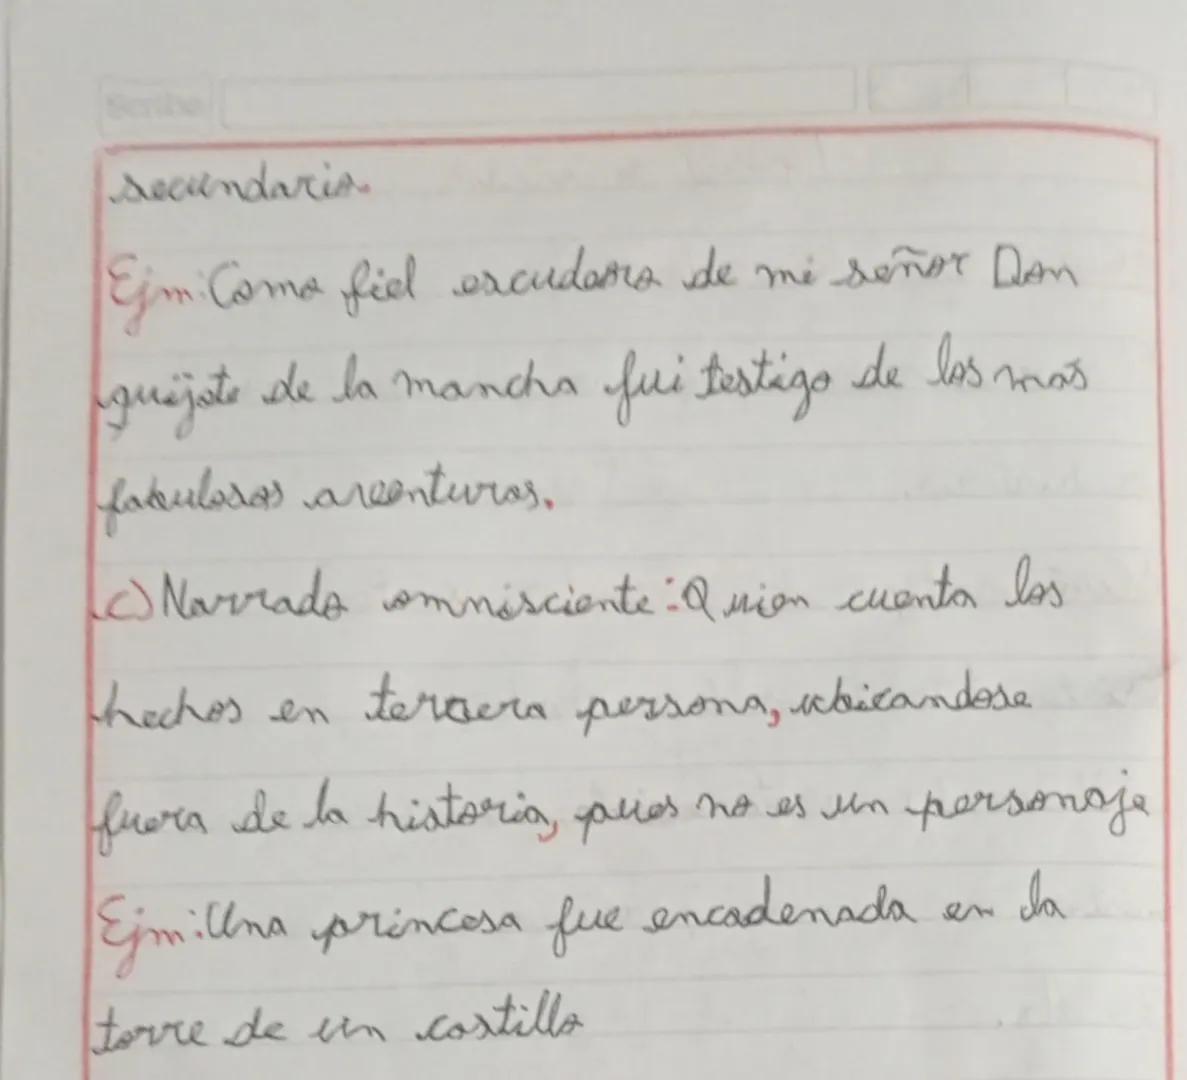 Scribe
secundario.
Ejm: Como fiel escudero de mi señor Don
quijote de la mancha fui testigo de las mas
fabulosas aventuras.
c) Narrado omnisciente: Quien cuenta los
hechos en tercera persona, ubicandose
fuera de la historia, pues no es un personaje
Ejm: Una princesa fue encadenada en la
torre de un castillo